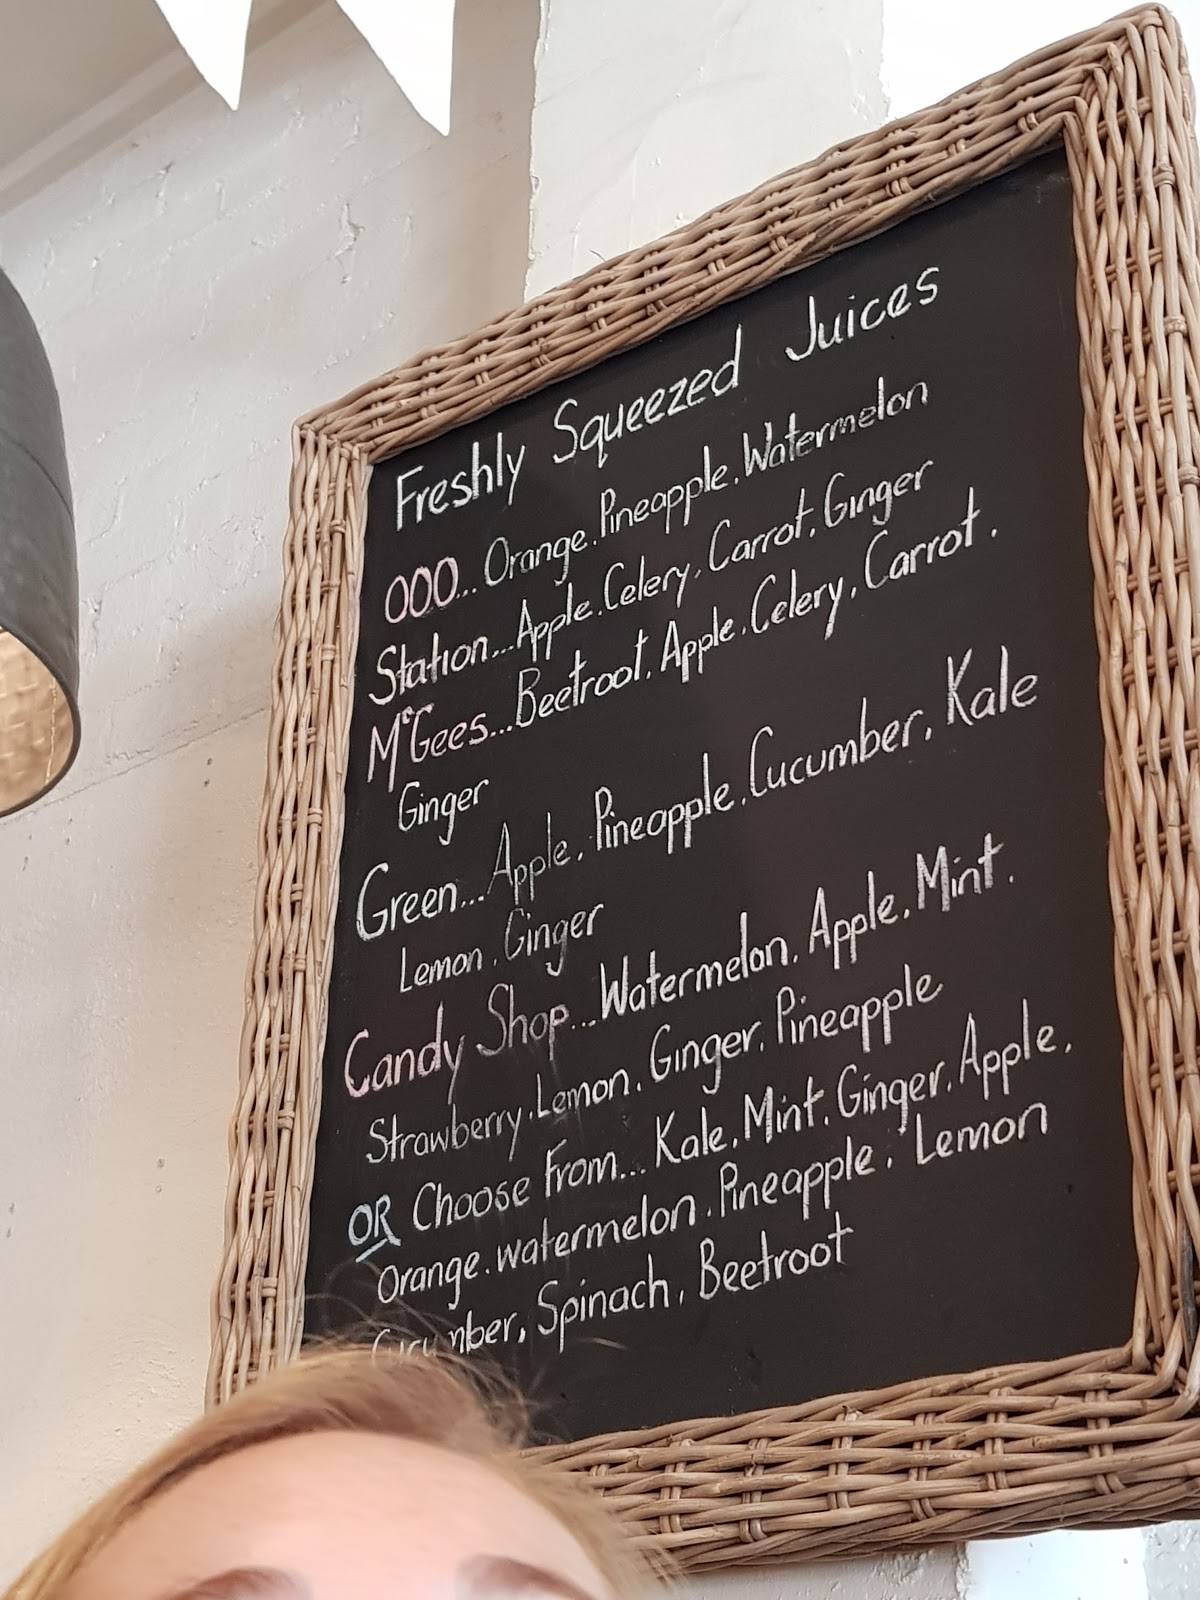 Freshly Squeezed Juices
OOO... Orange, Pineapple, Watermelon
Station... Apple, Celery, Carrot, Ginger
McGees... Beetroot, Apple, Celery, Carrot,
Ginger
Green... Apple, Pineapple, Cucumber, Kale
Lemon, Ginger
Candy Shop... Watermelon, Apple, Mint,
Strawberry, Lemon, Ginger, Pineapple
OR Choose From... Kale, Mint, Ginger, Apple,
Orange, watermelon, Pineapple, Lemon
Cucumber, Spinach, Beetroot